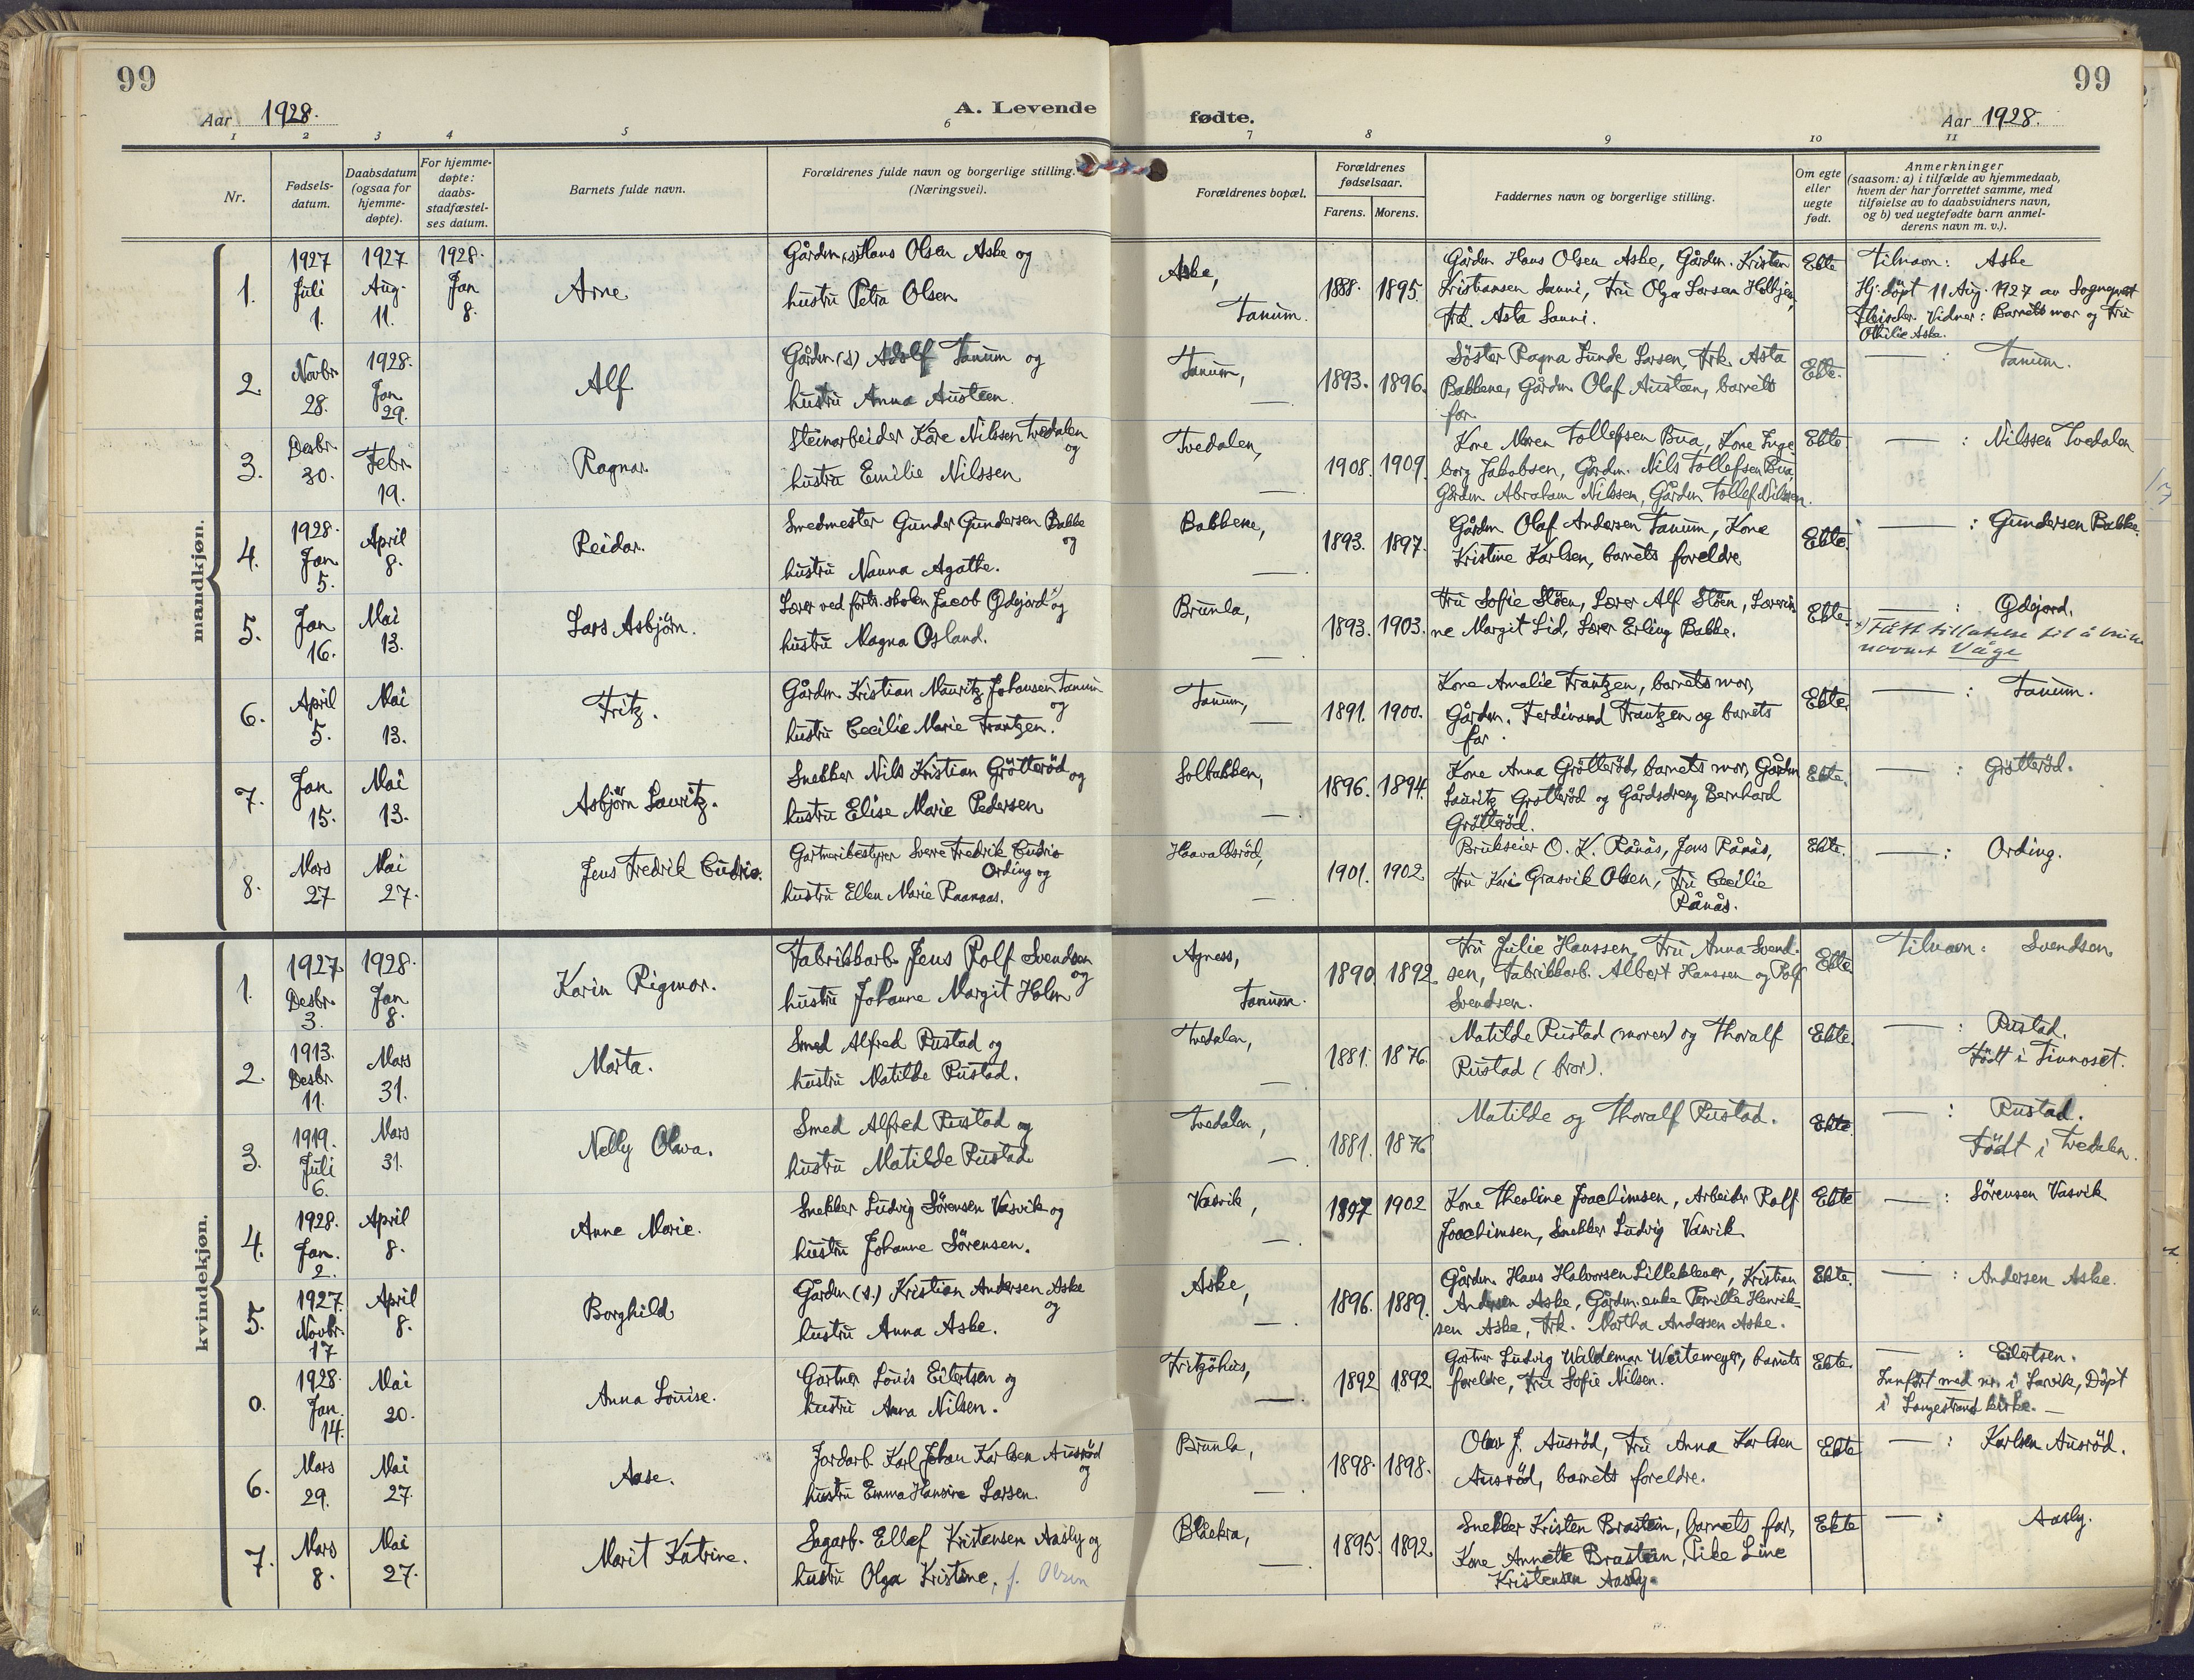 99
99
Aar 1928.
A. Levende fødte.
Aar 1928.
1 2 3 4 5 6 7 8 9 10 11
Nr.
Fødsels-
datum.
Daabsdatum
(ogsaa for
hjemme-
døpte).
For hjemme-
døpte:
daabs-
stadfæstel-
ses datum.
Barnets fulde navn.
Forældrenes fulde navn og borgerlige stilling.
(Næringsvei).
Forældrenes bopæl.
Forældrenes
fødselsaar.
Farens. Morens.
Faddernes navn og borgerlige stilling.
Om egte
eller
uegte
født.
Anmerkninger
(saasom: a) i tilfælde av hjemmedaab,
hvem der har forrettet samme, med
tilføielse av to daabsvidners navn,
og b) ved uegtefødte barn anmel-
derens navn m. v.).
mandkjøn.
1.
1927
Juli
1.
1927
Aug.
11.
1928.
Jan
8.
Arne
Gårdm. (s) Hans Olsen Aske og
hustru Petra Olsen
Aske,
Tanum.
1888. 1895.
Gårdm Hans Olsen Aske, Gårdm. Kristen
Kristiansen Sanni, Fru Olga Larsen
Frk. Asta Sanni.
Ekte
Tilnavn: Aske
Hj. döpt 11 Aug. 1927 av Sogneprest
Fleischer. Vidner: Barnets mor og Fru
Othilie Aske.
2.
Novbr
28.
1928.
Jan
29.
Alf
Gårdm. (s) Adolf Tanum og
hustru Anna Austeen.
Tanum,
—.
1893. 1896.
Söster Ragna Lunde Larsen, Frk. Asta
Bakkene, Gårdm. Olaf Austeen, barnets
far.
Ekte.
— : Tanum.
3.
Desbr.
30.
Febr
19.
Ragnar.
Steinarbeider Kåre Nilssen Tvedalen
og
hustru Emilie Nilssen
Tvedalen,
—
1908. 1909.
Kone Maren Tollefsen Bua, Kone Inge
borg Jakobsen, Gårdm. Nils Tollefsen Bua
Gårdm Abraham Nilssen, Gårdm Tollef Nilssen.
Ekte
— : Nilssen Tvedalen
4.
1928.
Jan
5.
April
8.
Reidar.
Smedmester Gunder Gundersen Bakke
og
hustru Nanna Agathe.
Bakkene,
—.
1893. 1897.
Gårdm Olaf Andersen Tanum, Kone
Kristine Karlsen, barnets foreldre
Ekte.
— : Gundersen Bakke.
5.
Jan
16.
Mai
13.
Lars Asbjörn.
Lærer ved forts. skolen Jacob Ödegård x) og
hustru Magna Osland.
Brunla,
—.
1893. 1903.
Fru Sofie Stöen, Lærer Alf Stöen, Lærerin
ne Margit Lid, Lærer Erling Bakke.
Ekte.
— : Ödejord.
x) Fått tillatelse til å bruke
navnet Våge
6.
April
5.
Mai
13.
Fritz.
Gårdm. Kristian Mauritz Johansen Tanum
og
hustru Cecilie Marie Frantzen.
Tanum,
—
1891. 1900.
Kone Amalie Frantzen, barnets mor,
Gårdm. Ferdinand Frantzen og barnets
far.
Ekte.
— : Tanum.
7.
Jan
15.
Mai
13.
Asbjörn Lauritz.
Snekker Nils Kristian Grötteröd og
hustru Elise Marie Pedersen
Solbakken,
—.
1896. 1894.
Kone Anna Grötteröd, barnets mor, Gårdm
Lauritz Grötteröd og Gårdsdreng Bernhard
Grötteröd.
Ekte.
— : Grötteröd.
8.
Mars
27
Mai
27.
Jens Fredrik Cudrio.
Gartneribestyrer Sverre Fredrik Cudrio
Ording og
hustru Ellen Marie Raanaas.
Haavaldsröd,
—.
1901. 1902
Brukseier O. K. Rånås, Jens Rånås,
Fru Kari Grasvik Olsen, Fru Cecilie
Rånås.
Ekte.
— : Ording.
kvindekjøn.
1.
1927
Desbr.
3.
1928.
Jan
8.
Karin Rigmor.
Fabrikkarb. Jens Rolf Svendsen
og
hustru Johanne Margit Holm
Agness,
Tanum.
1890. 1892
Fru Julie Hanssen, Fru Anna Svend-
sen, Fabrikkarb. Albert Hanssen og Rolf
Svendsen.
Ekte.
Tilnavn: Svendsen
2.
1913.
Desbr
11.
Mars
31.
Marta.
Smed Alfred Rustad og
hustru Matilde Rustad.
Tvedalen,
—.
1881. 1876
Matilde Rustad (moren) og Thoralf
Rustad (bror).
Ekte.
— : Rustad.
Födt i Tinnoset.
3.
1919.
Juli
6.
Mars
31.
Nelly Olava.
Smed Alfred Rustad og
hustru Matilde Rustad
Tvedalen,
—.
1881. 1876
Matilde og Thoralf Rustad.
Ekte.
— : Rustad.
Födt i Tvedalen.
4.
1928.
Jan.
2.
April
8.
Anne Marie.
Snekker Ludvig Sörensen Vasvik og
hustru Johanne Sörensen.
Vasvik,
—.
1897 1902
Kone Theoline Joachimsen, Arbeider Rolf
Joachimsen, Snekker Ludvig Vasvik
Ekte
— : Sörensen Vasvik
5.
1927.
Novbr.
17
April
8.
Borghild
Gårdm (s.) Kristian Andersen Aske
og
hustru Anna Aske.
Aske,
—.
1896. 1889.
Gårdm. Hans Halvorsen Lillekleven, Kristian
Andersen Aske, Gårdm. enke Pernille Henrik-
sen Aske, Frk. Martha Andersen Aske.
Ekte.
— : Andersen Aske.
0.
1928.
Jan.
14.
Mai
20.
Anna Louise.
Gartner Louis Eilertsen og
hustru Anna Nilsen.
Fritzöhus,
—.
1892 1892
Gartner Ludvig Waldemar Weitemeyer, barnets
foreldre, Fru Sofie Nilsen.
Ekte.
— : Eilertsen.
Innfört med nr. i Larvik, Döpt
i Langestrand kirke. —
6.
Mars
29.
Mai
27.
Aase.
Jordarb. Karl Johan Karlsen Ausröd
og
hustru Emma Hansine Larsen.
Brunla,
—.
1898. 1898.
Olav J. Ausröd, Fru Anna Karlsen
Ausröd, barnets foreldre.
Ekte
— : Karlsen Ausröd.
7.
Mars
8.
Mai
27.
Marit Katrine.
Sagarb. Ellef Kristensen Aasly og
hustru Olga Kristine, f. Olsen
Blåekra,
—.
1895. 1892
Snekker Kristen Brastein, barnets far,
Kone Annette Brastein, Pike Line
Kristensen Aasly.
Ekte
— : Aasly.